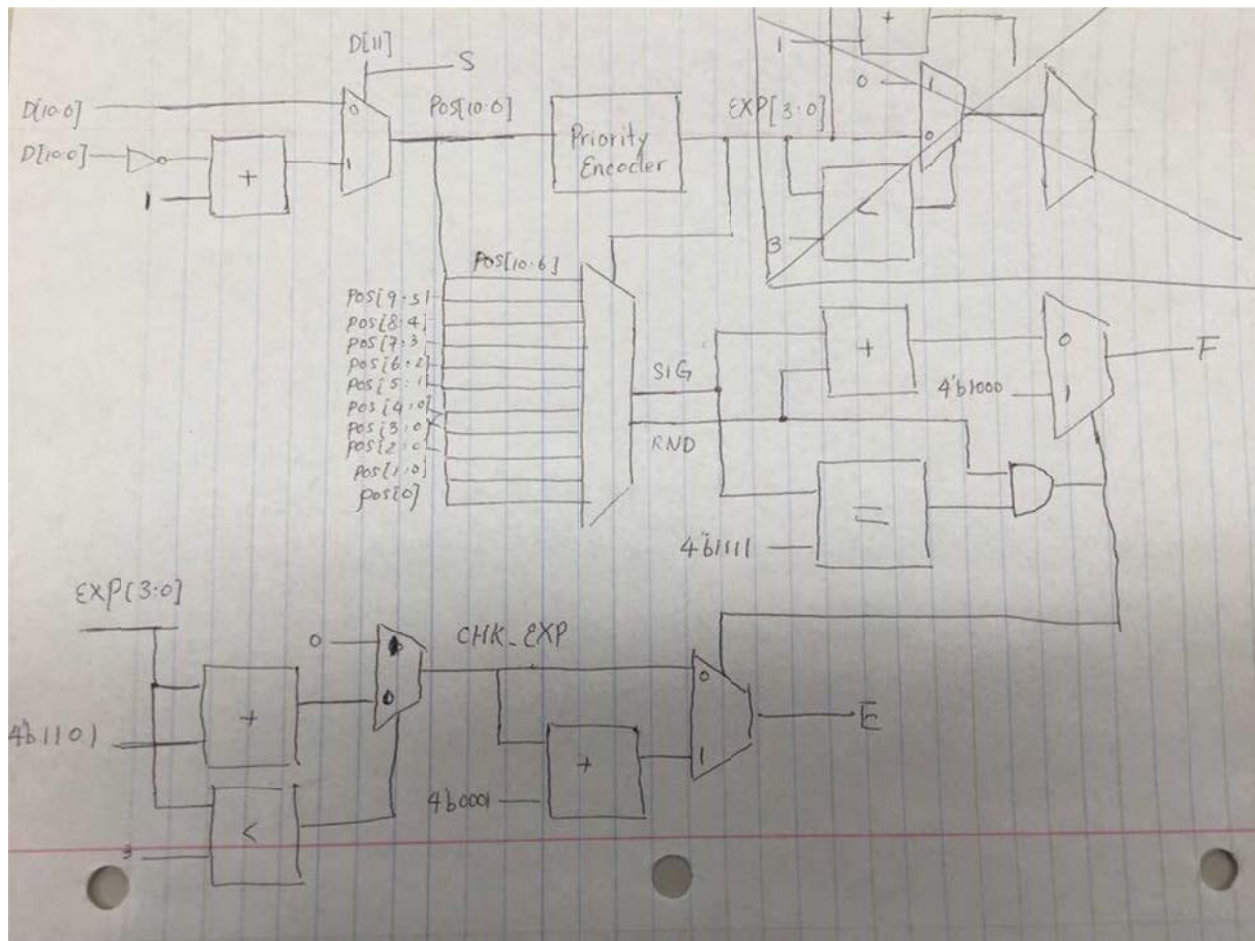 D[11]
S
D[10:0]
0
POS[10:0]
Priority
Encoder
EXP[3:0]
D[10:0]
1
+
1
+
1
0
1
0
<
3
POS[10:6]
POS[9:5]
POS[8:4]
POS[7:3]
POS[6:2]
POS[5:1]
POS[4:0]
POS[3:0]
POS[2:0]
POS[1:0]
POS[0]
SIG
RND
+
0
4'b1000
1
F
=
4'b1111
EXP[3:0]
0
CHK_EXP
+
4'b1101
<
3
+
4'b0001
0
1
E